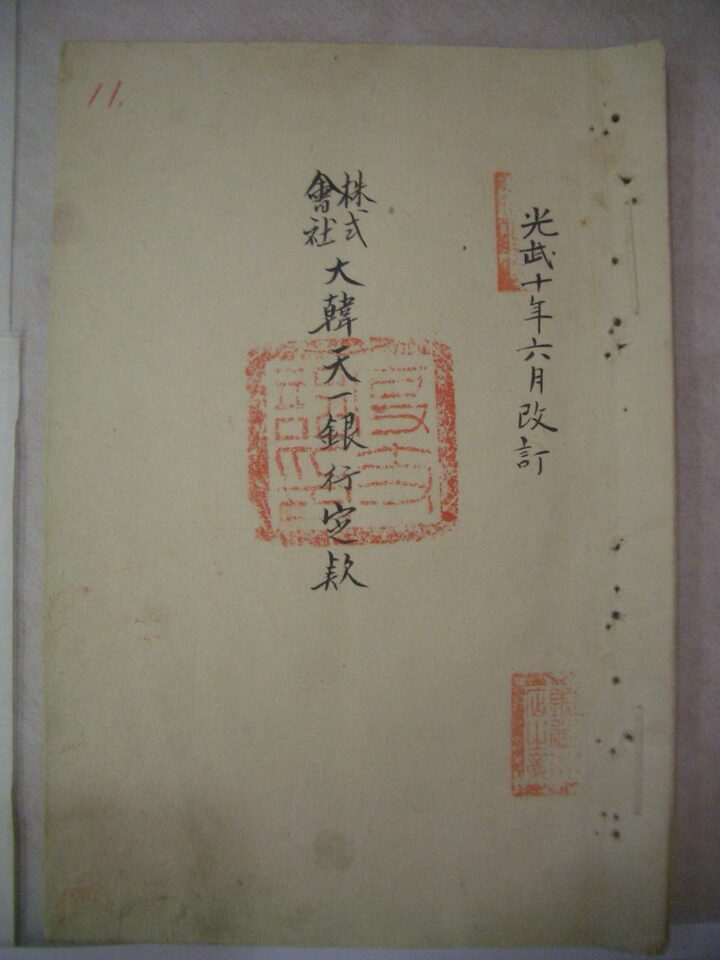 光武十年六月改訂
株式會社大韓天一銀行定款
11.